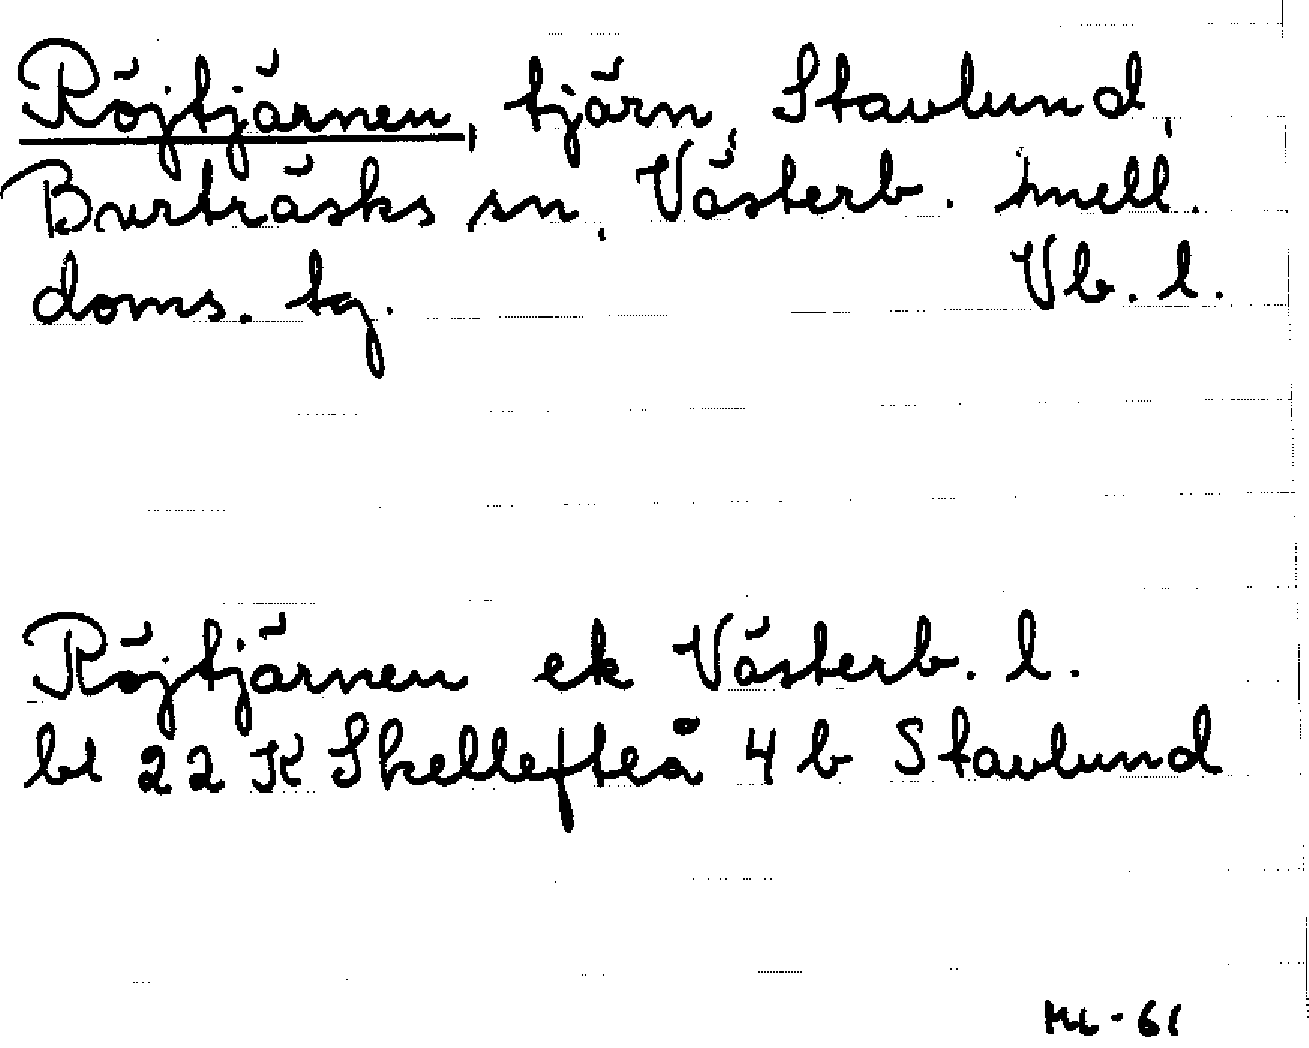 Röjtjärnen, tjärn, Stavlund,
Burträsks sn, Västerb. mell.
doms. tg. Vb. l.
Röjtjärnen ek Västerb. l.
bl 22 K Skellefteå 4 b Stavlund
ML-61